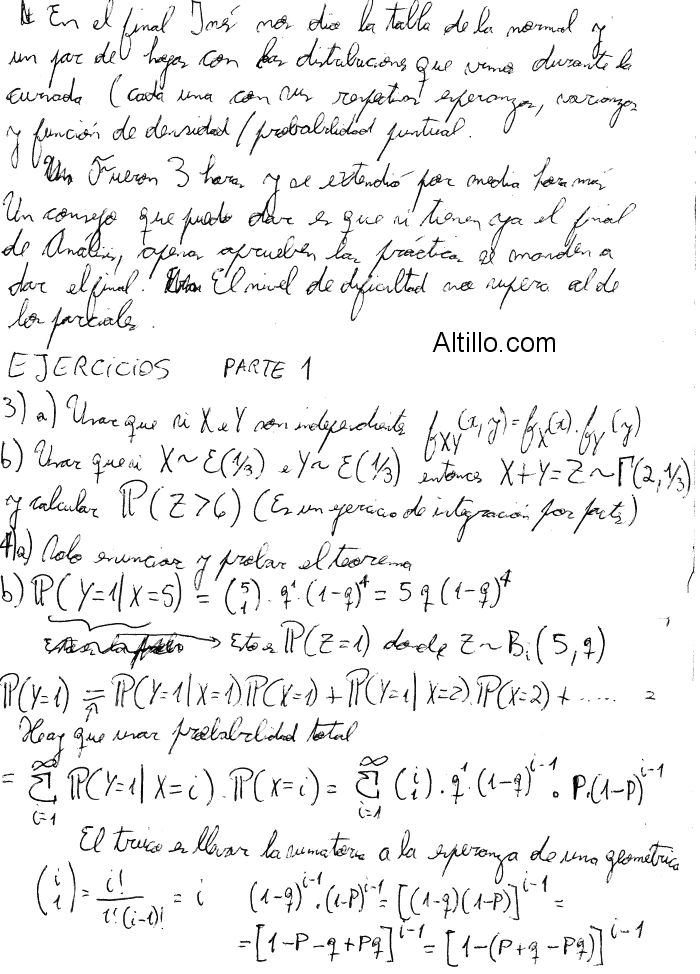 En el final Inés nos dio la tabla de la normal y
un par de hojas con las distribuciones que vimos durante la
cursada (cada una con sus respectivas esperanzas, varianzas
y función de densidad / probabilidad puntual.
Fueron 3 horas y se extendió por media hora más
Un consejo que puedo dar es que si tienen ya el final
de Análisis, apenas aprueben las prácticas se manden a
dar el final. El nivel de dificultad no supera al de
los parciales.
Altillo.com
EJERCICIOS PARTE 1
3) a) Usar que si X e Y son independientes f_XY(x,y) = f_X(x).f_Y(y)
b) Usar que si X ~ Ɛ(1/3) e Y ~ Ɛ(1/3) entonces X+Y=Z ~ Γ(2,1/3)
y calcular ℙ(Z>6) (Es un ejercicio de integración por partes)
4) a) Solo enunciar y probar el teorema
b) ℙ(Y=1|X=5) = (5 1).q¹.(1-q)⁴ = 5q(1-q)⁴
→ Esto es ℙ(Z=1) donde Z ~ Bi(5,q)
ℙ(Y=1) = ℙ(Y=1|X=1).ℙ(X=1) + ℙ(Y=1|X=2).ℙ(X=2) + ..... =
Hay que usar probabilidad total
= Σ_{i=1}^∞ ℙ(Y=1|X=i).ℙ(X=i) = Σ_{i=1}^∞ (i 1).q¹.(1-q)^{i-1}.P.(1-P)^{i-1}
El truco es llevar la sumatoria a la esperanza de una geométrica
(i 1) = i!/1!(i-1)! = i (1-q)^{i-1}.(1-P)^{i-1} = [(1-q)(1-P)]^{i-1} =
= [1-P-q+Pq]^{i-1} = [1-(P+q-Pq)]^{i-1}